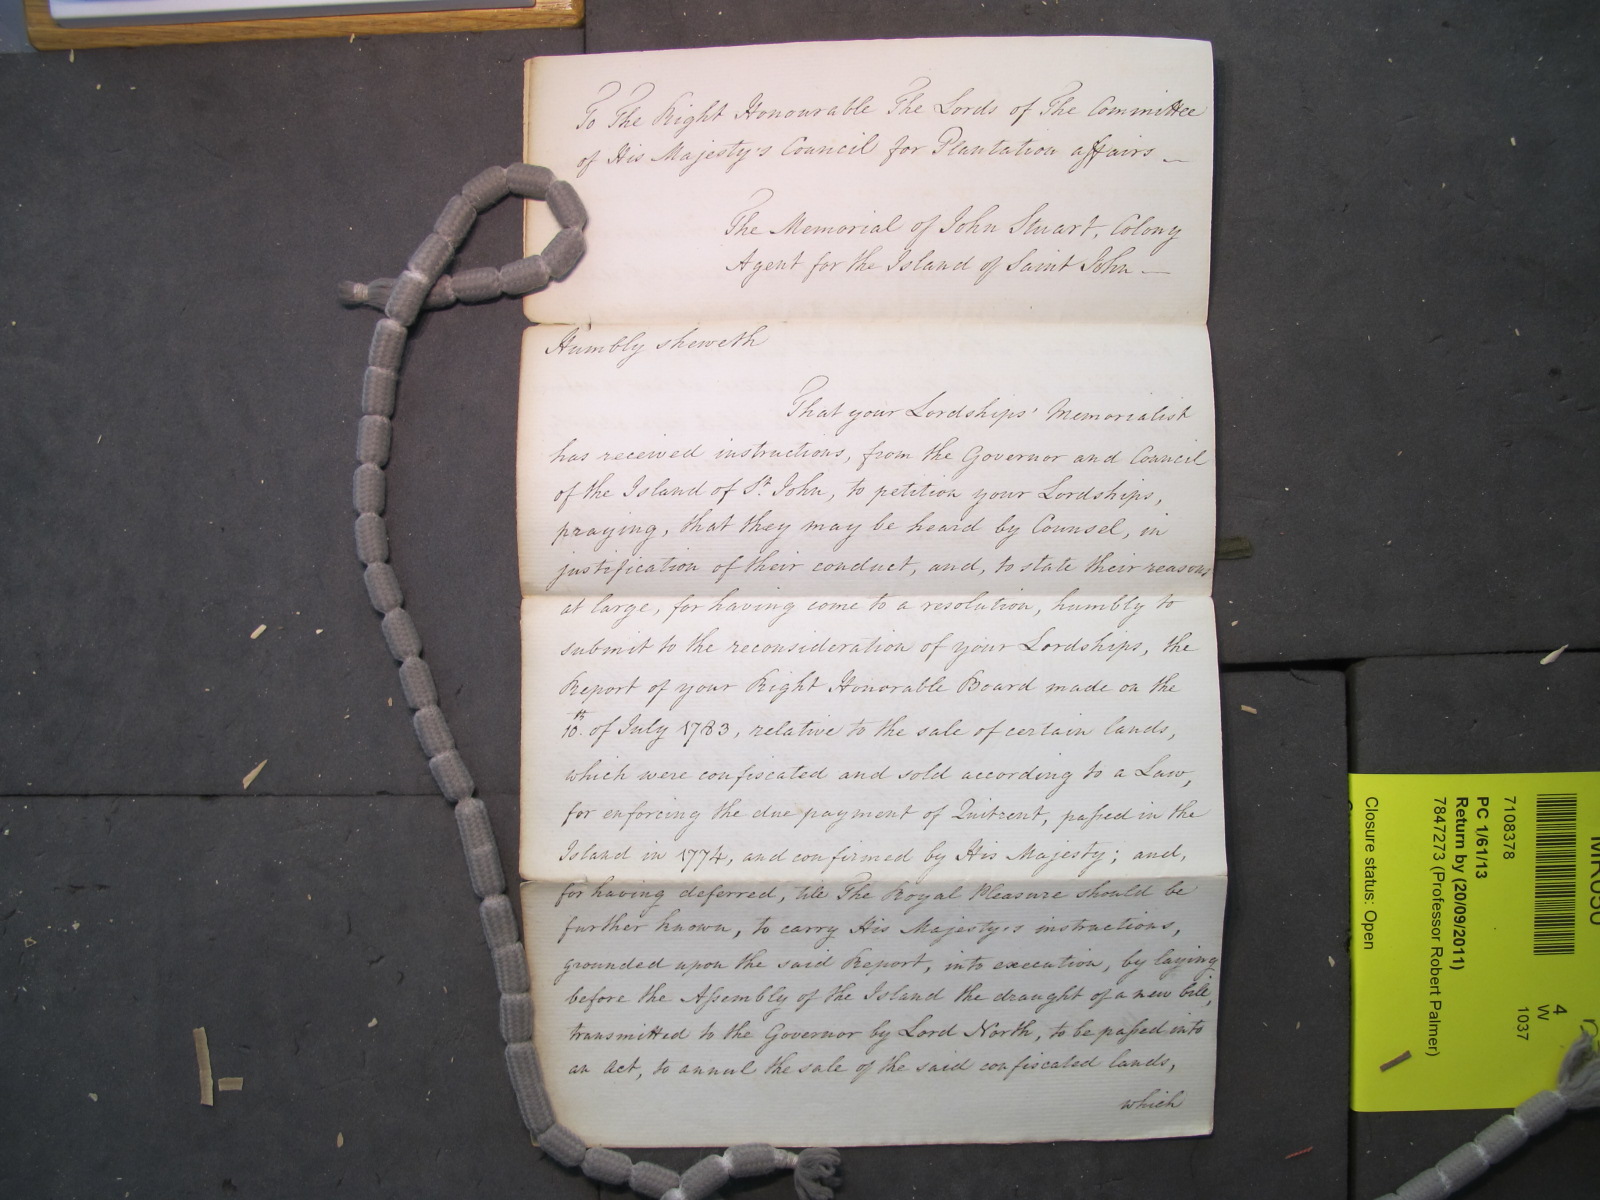 To The Right Honourable The Lords of The Committee
of His Majesty's Council for Plantation affairs —
The Memorial of John Stuart, Colony
Agent for the Island of Saint John —
Humbly sheweth
That your Lordships' Memorialist
has received instructions, from the Governor and Council
of the Island of St. John, to petition your Lordships,
praying, that they may be heard by Counsel, in
justification of their conduct, and, to state their reasons
at large, for having come to a resolution, humbly to
submit to the reconsideration of your Lordships, the
Report of your Right Honorable Board made on the
10th. of July 1783, relative to the sale of certain lands,
which were confiscated and sold according to a Law,
for enforcing the due payment of Quitrent, paſsed in the
Island in 1774, and confirmed by His Majesty; and,
for having deferred, till The Royal Pleasure should be
further known, to carry His Majesty's instructions,
grounded upon the said Report, into execution, by laying
before the Aſsembly of the Island the draught of a new bill,
transmitted to the Governor by Lord North, to be paſsed into
an Act, to annul the sale of the said confiscated lands,
which
7108378
PC 1/61/13
Return by (20/09/2011)
7847273 (Professor Robert Palmer)
Closure status: Open
4
W
1037